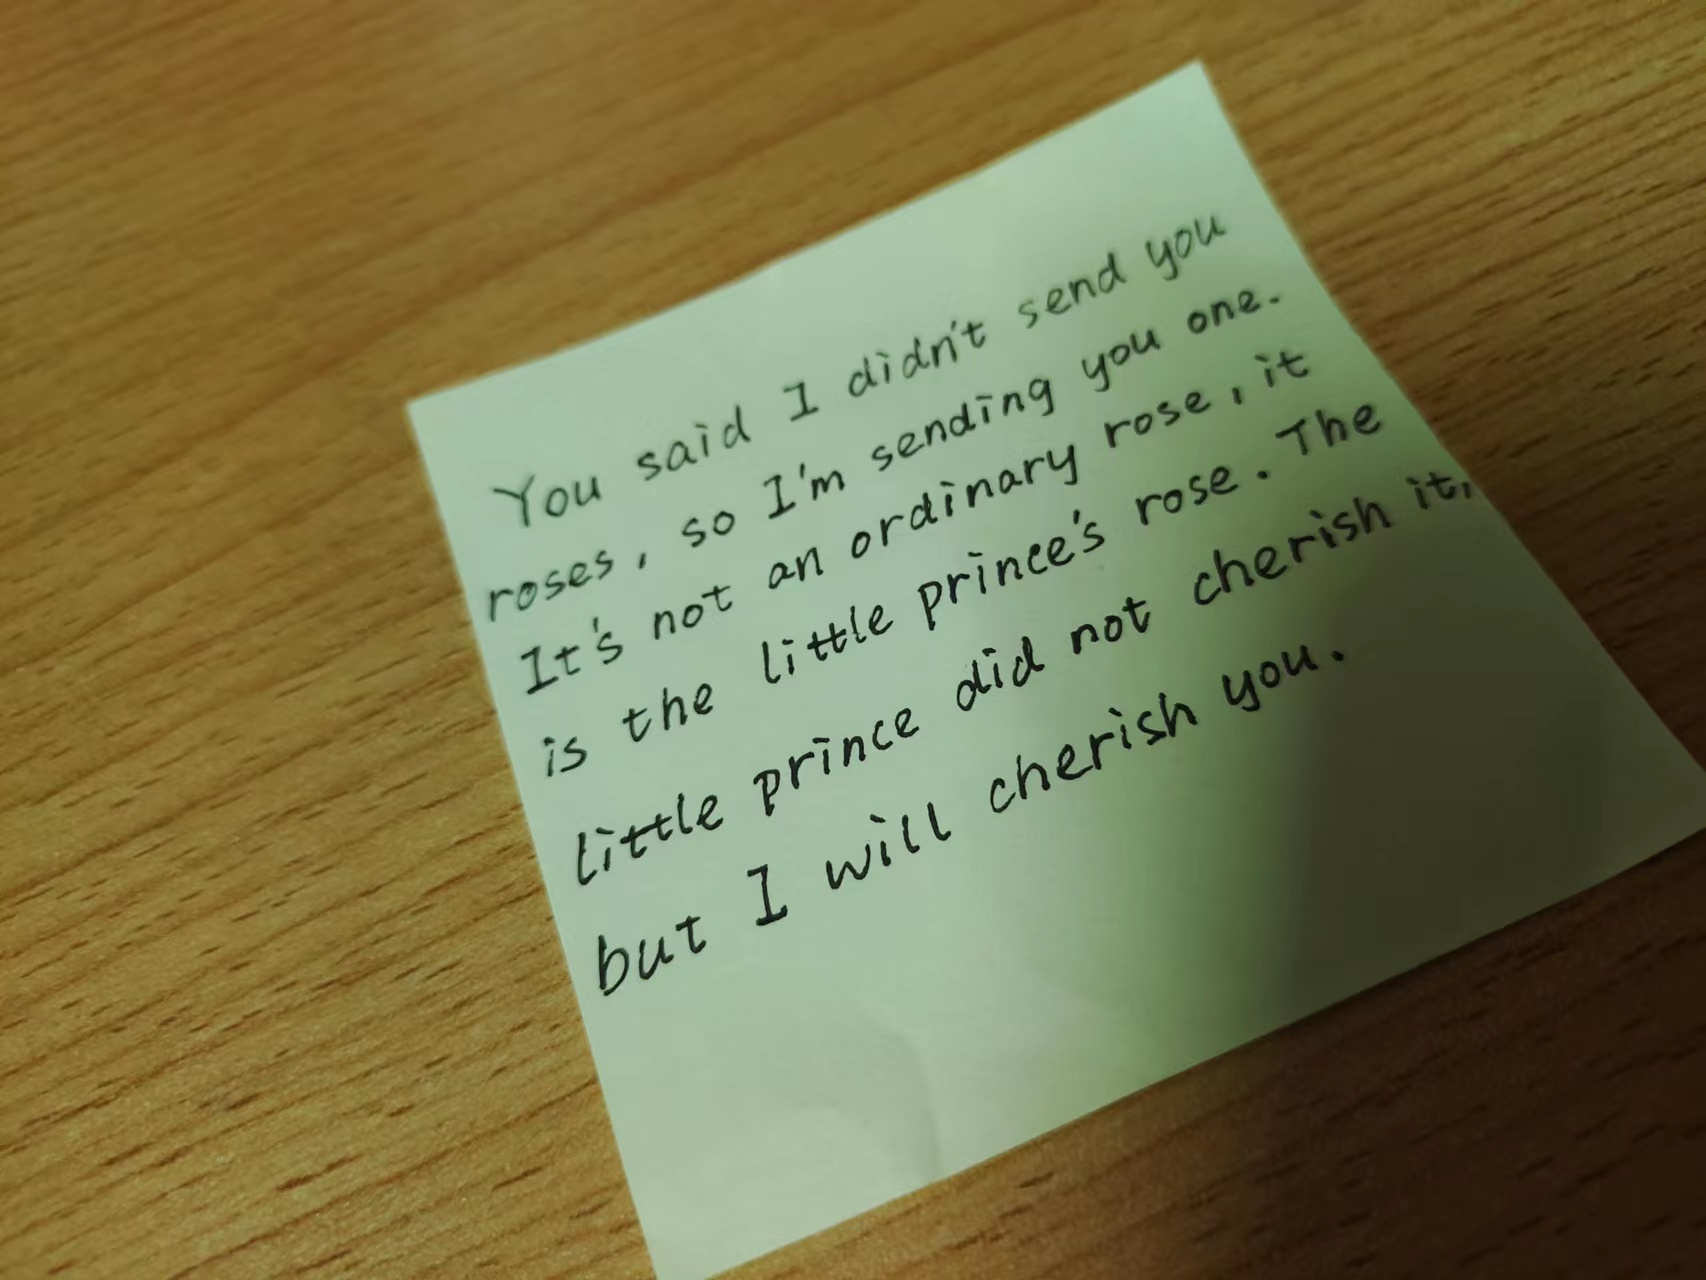 You said I didn't send you
roses, so I'm sending you one.
It's not an ordinary rose, it
is the little prince's rose. The
little prince did not cherish it,
but I will cherish you.